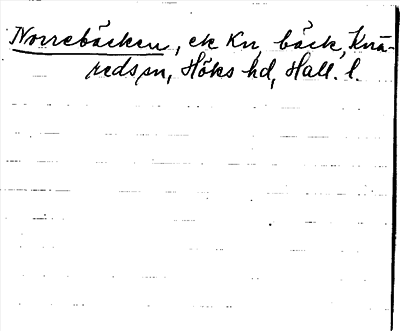 Norrebäcken, ek Kn, bäck, Knä-
reds sn, Höks hd, Hall. l.